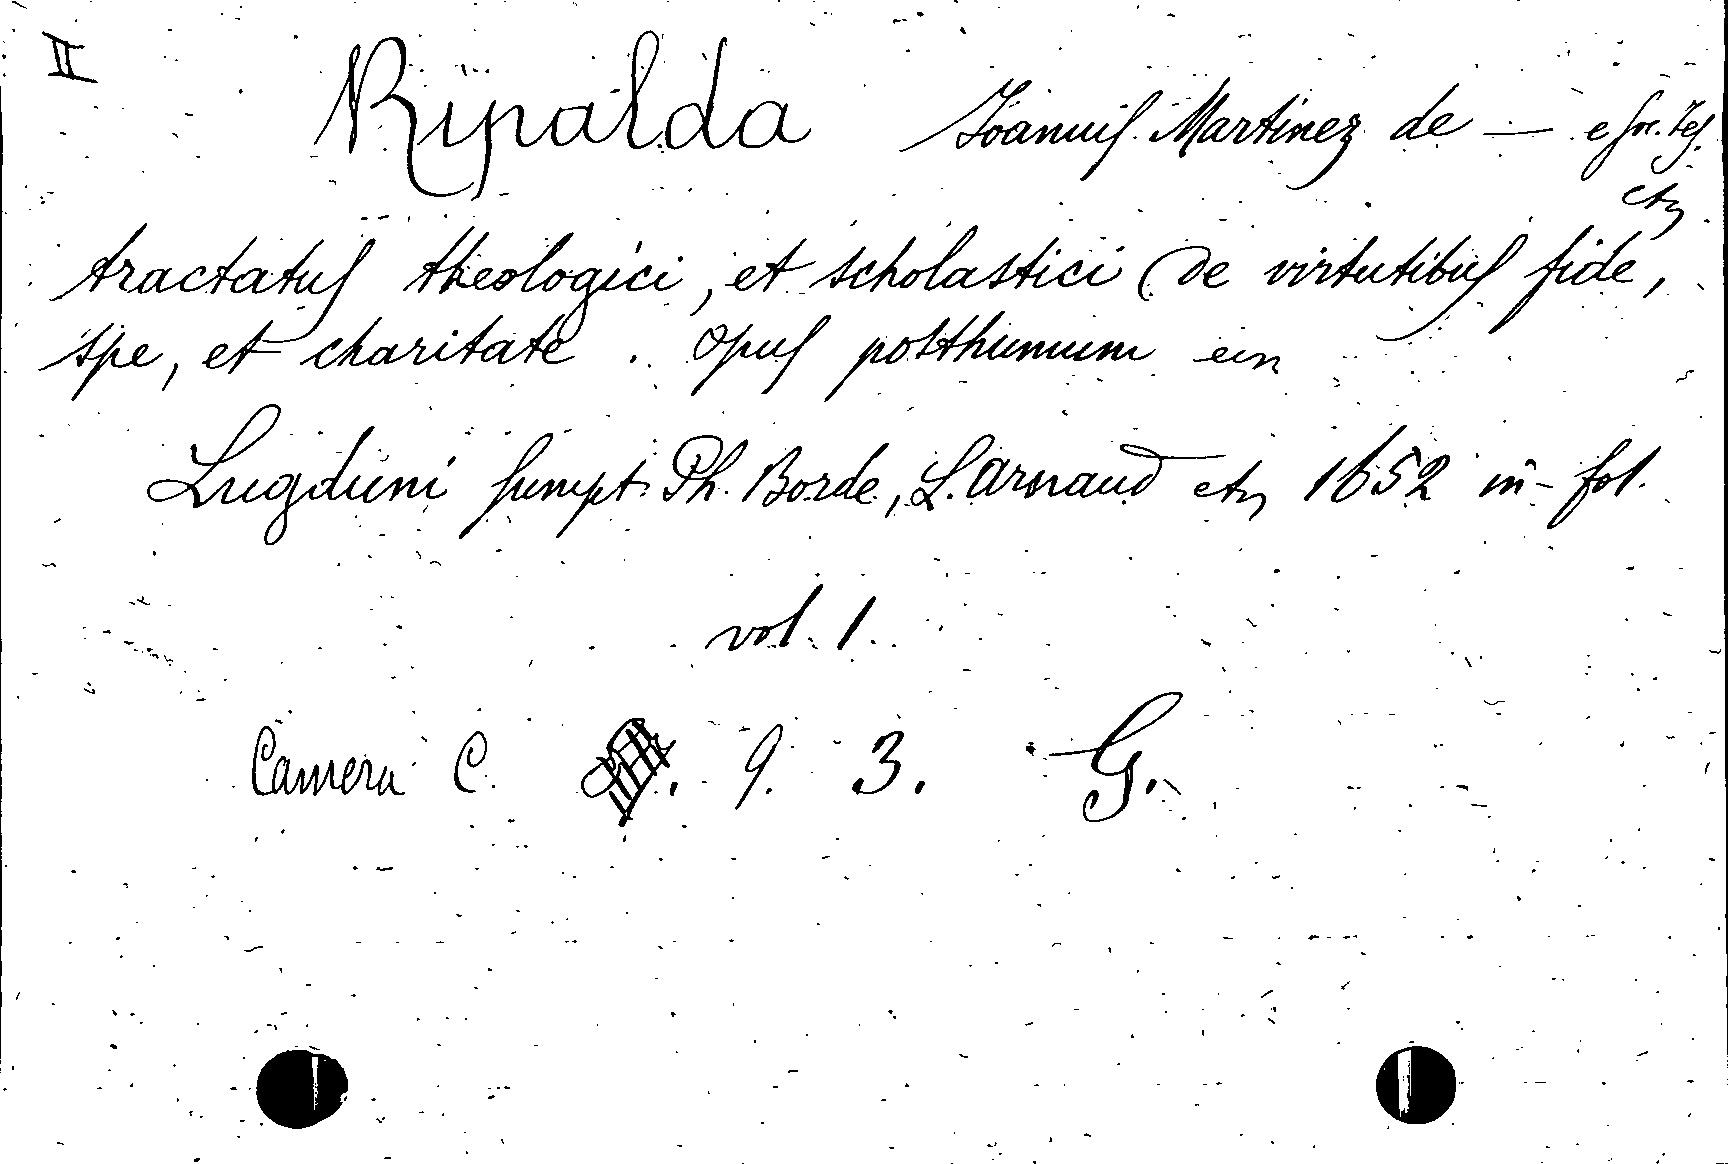 II
Ripalda Ioannis Martinez de — e Soc. Ies.
etc
tractatus theologici, et scholastici de virtutibus fide,
spe, et charitate. Opus posthumum
Lugduni sumpt. Ph. Borde, L. Arnaud etc 1652 in-fol.
vol. 1.
Camera C. 9. 3. G.